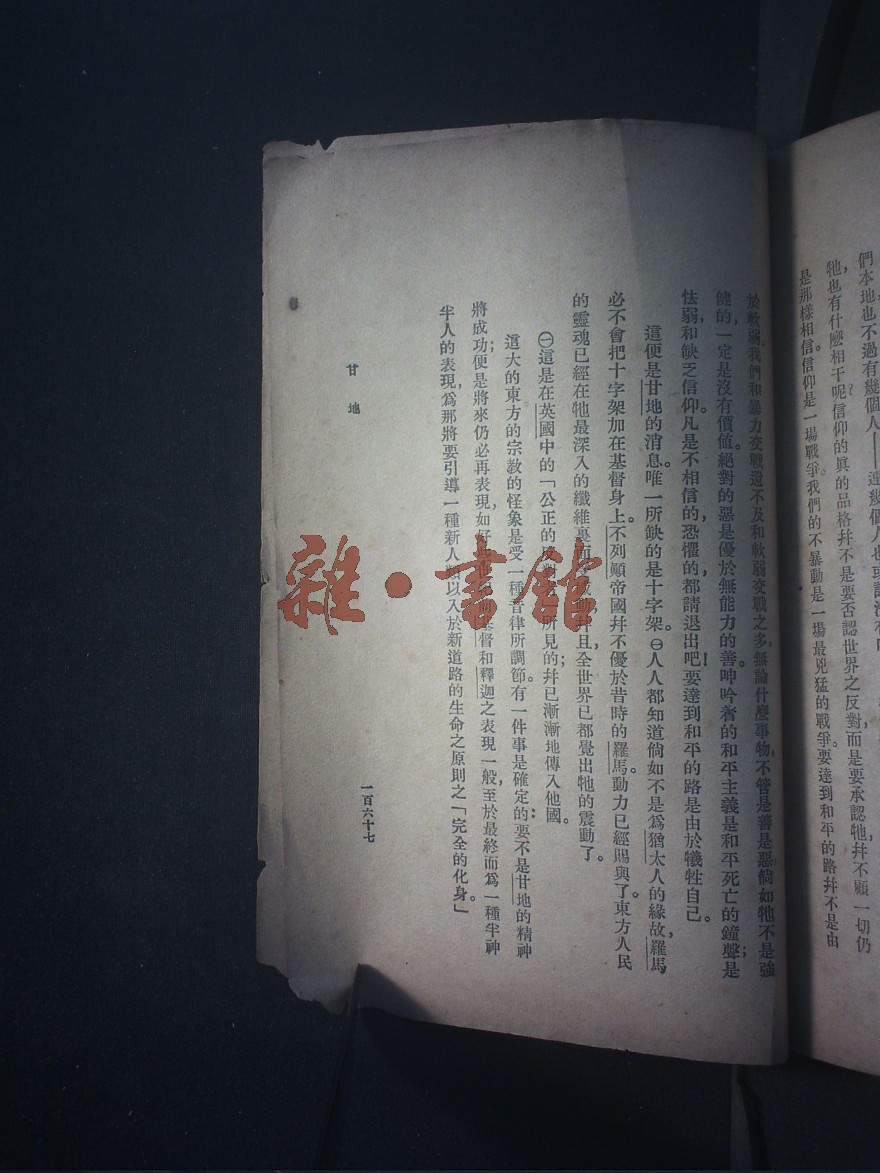 們本地也不過有幾個人
牠,也有什麼相干呢?信仰的眞的品格幷不是要否認世界之反對,而是要承認牠,幷不顧一切仍
是那樣相信。信仰是一場戰爭。我們的不暴動是一場最兇猛的戰爭。要達到和平的路幷不是由
於軟弱。我們和暴力交戰還不及和軟弱交戰之多。無論什麼事物,不管是善是惡,倘如牠不是強
健的,一定是沒有價值。絕對的惡是優於無能力的善。呻吟着的和平主義是和平死亡的鐘聲;是
怯弱和缺乏信仰。凡是不相信的,恐懼的,都請退出吧!要達到和平的路是由於犧牲自己。
這便是甘地的消息。唯一所缺的是十字架。㊀人人都知道倘如不是爲猶太人的緣故,羅馬
必不會把十字架加在基督身上。不列顚帝國幷不優於昔時的羅馬。動力已經賜與了東方人民
的靈魂已經在牠最深入的纖維裏而被激動,幷且全世界已都覺出牠的震動了。
㊀這是在英國中的「公正的 所見的;幷已漸漸地傳入他國。
這大的東方的宗敎的怪象是受一種音律所調節。有一件事是確定的:要不是甘地的精神
將成功;便是將來仍必再表現,如好 基督和釋迦之表現一般,至於最終而爲一種半神
半人的表現,爲那將要引導一種新人類以入於新道路的生命之原則之「完全的化身。」
甘地
一百六十七
雜·書館